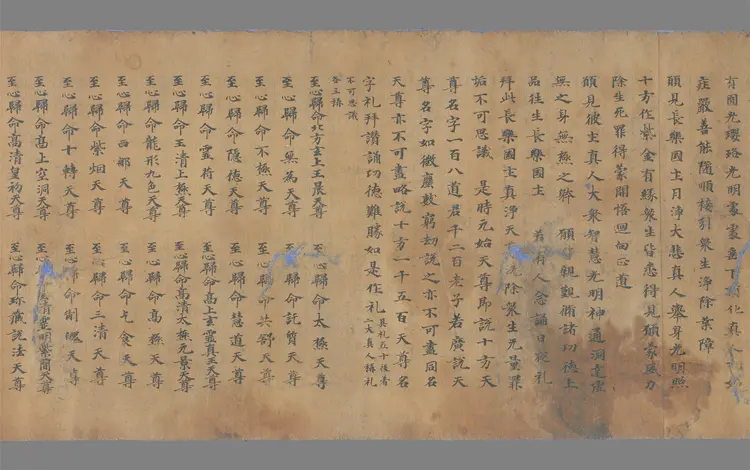 項圓光瓔珞光明
莊嚴善能隨順接引衆生淨除業障
願見長樂國土月淨大慈真人舉身光明照
十方作紫金有緣衆生皆悉得見願蒙威力
除生死罪得蒙開悟迴向正道
願見彼土真人大衆智慧光明神通洞達虛
無之身無極之躰 願 親覲脩諸功德上
品往生長樂國土 若有人念誦日夜礼
拜此長樂國土真淨天 洗除衆生无量罪
垢不可思議 是時元始天尊即說十方天
尊名字一百八道君千二百老子若廣說天
尊名字如微塵數窮劫說之亦不可盡同名
天尊亦不可盡略說十方一千五百天尊名
字礼拜讚誦功德難勝如是作礼 其礼五十後普礼一大真人稱礼
不可思議
各三稱
至心歸命北方玄上玉晨天尊 至心歸命太極天尊
至心歸命無為天尊 至心歸命託質天尊
至心歸命不極天尊 至心歸命共舒天尊
至心歸命隱德天尊 至心歸命慧道天尊
至心歸命靈符天尊 至心歸命高上玄靈真王天尊
至心歸命玉清上極天尊 至心歸命高清太極元景天尊
至心歸命龍形九色天尊 至心歸命高極天尊
至心歸命西那天尊 至心歸命乞食天尊
至心歸命紫烟天尊 至心歸命三清天尊
至心歸命十轉天尊 至心歸命制魄天尊
至心歸命高上空洞天尊 至心歸命 清靈明紫簡天尊
至心歸命高清皇初天尊 至心歸命珎藏說法天尊